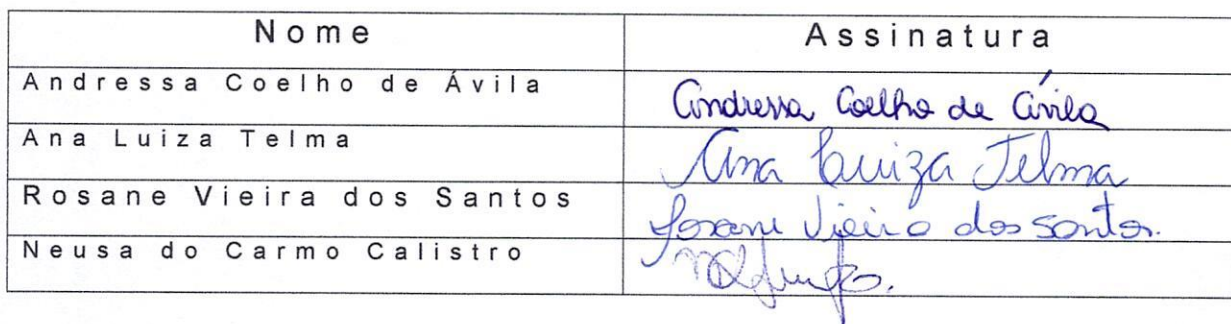 Nome Assinatura
Andressa Coelho de Ávila Andressa Coelho de Ávila
Ana Luiza Telma Ana Luiza Telma
Rosane Vieira dos Santos Rosane Vieira dos Santos.
Neusa do Carmo Calistro